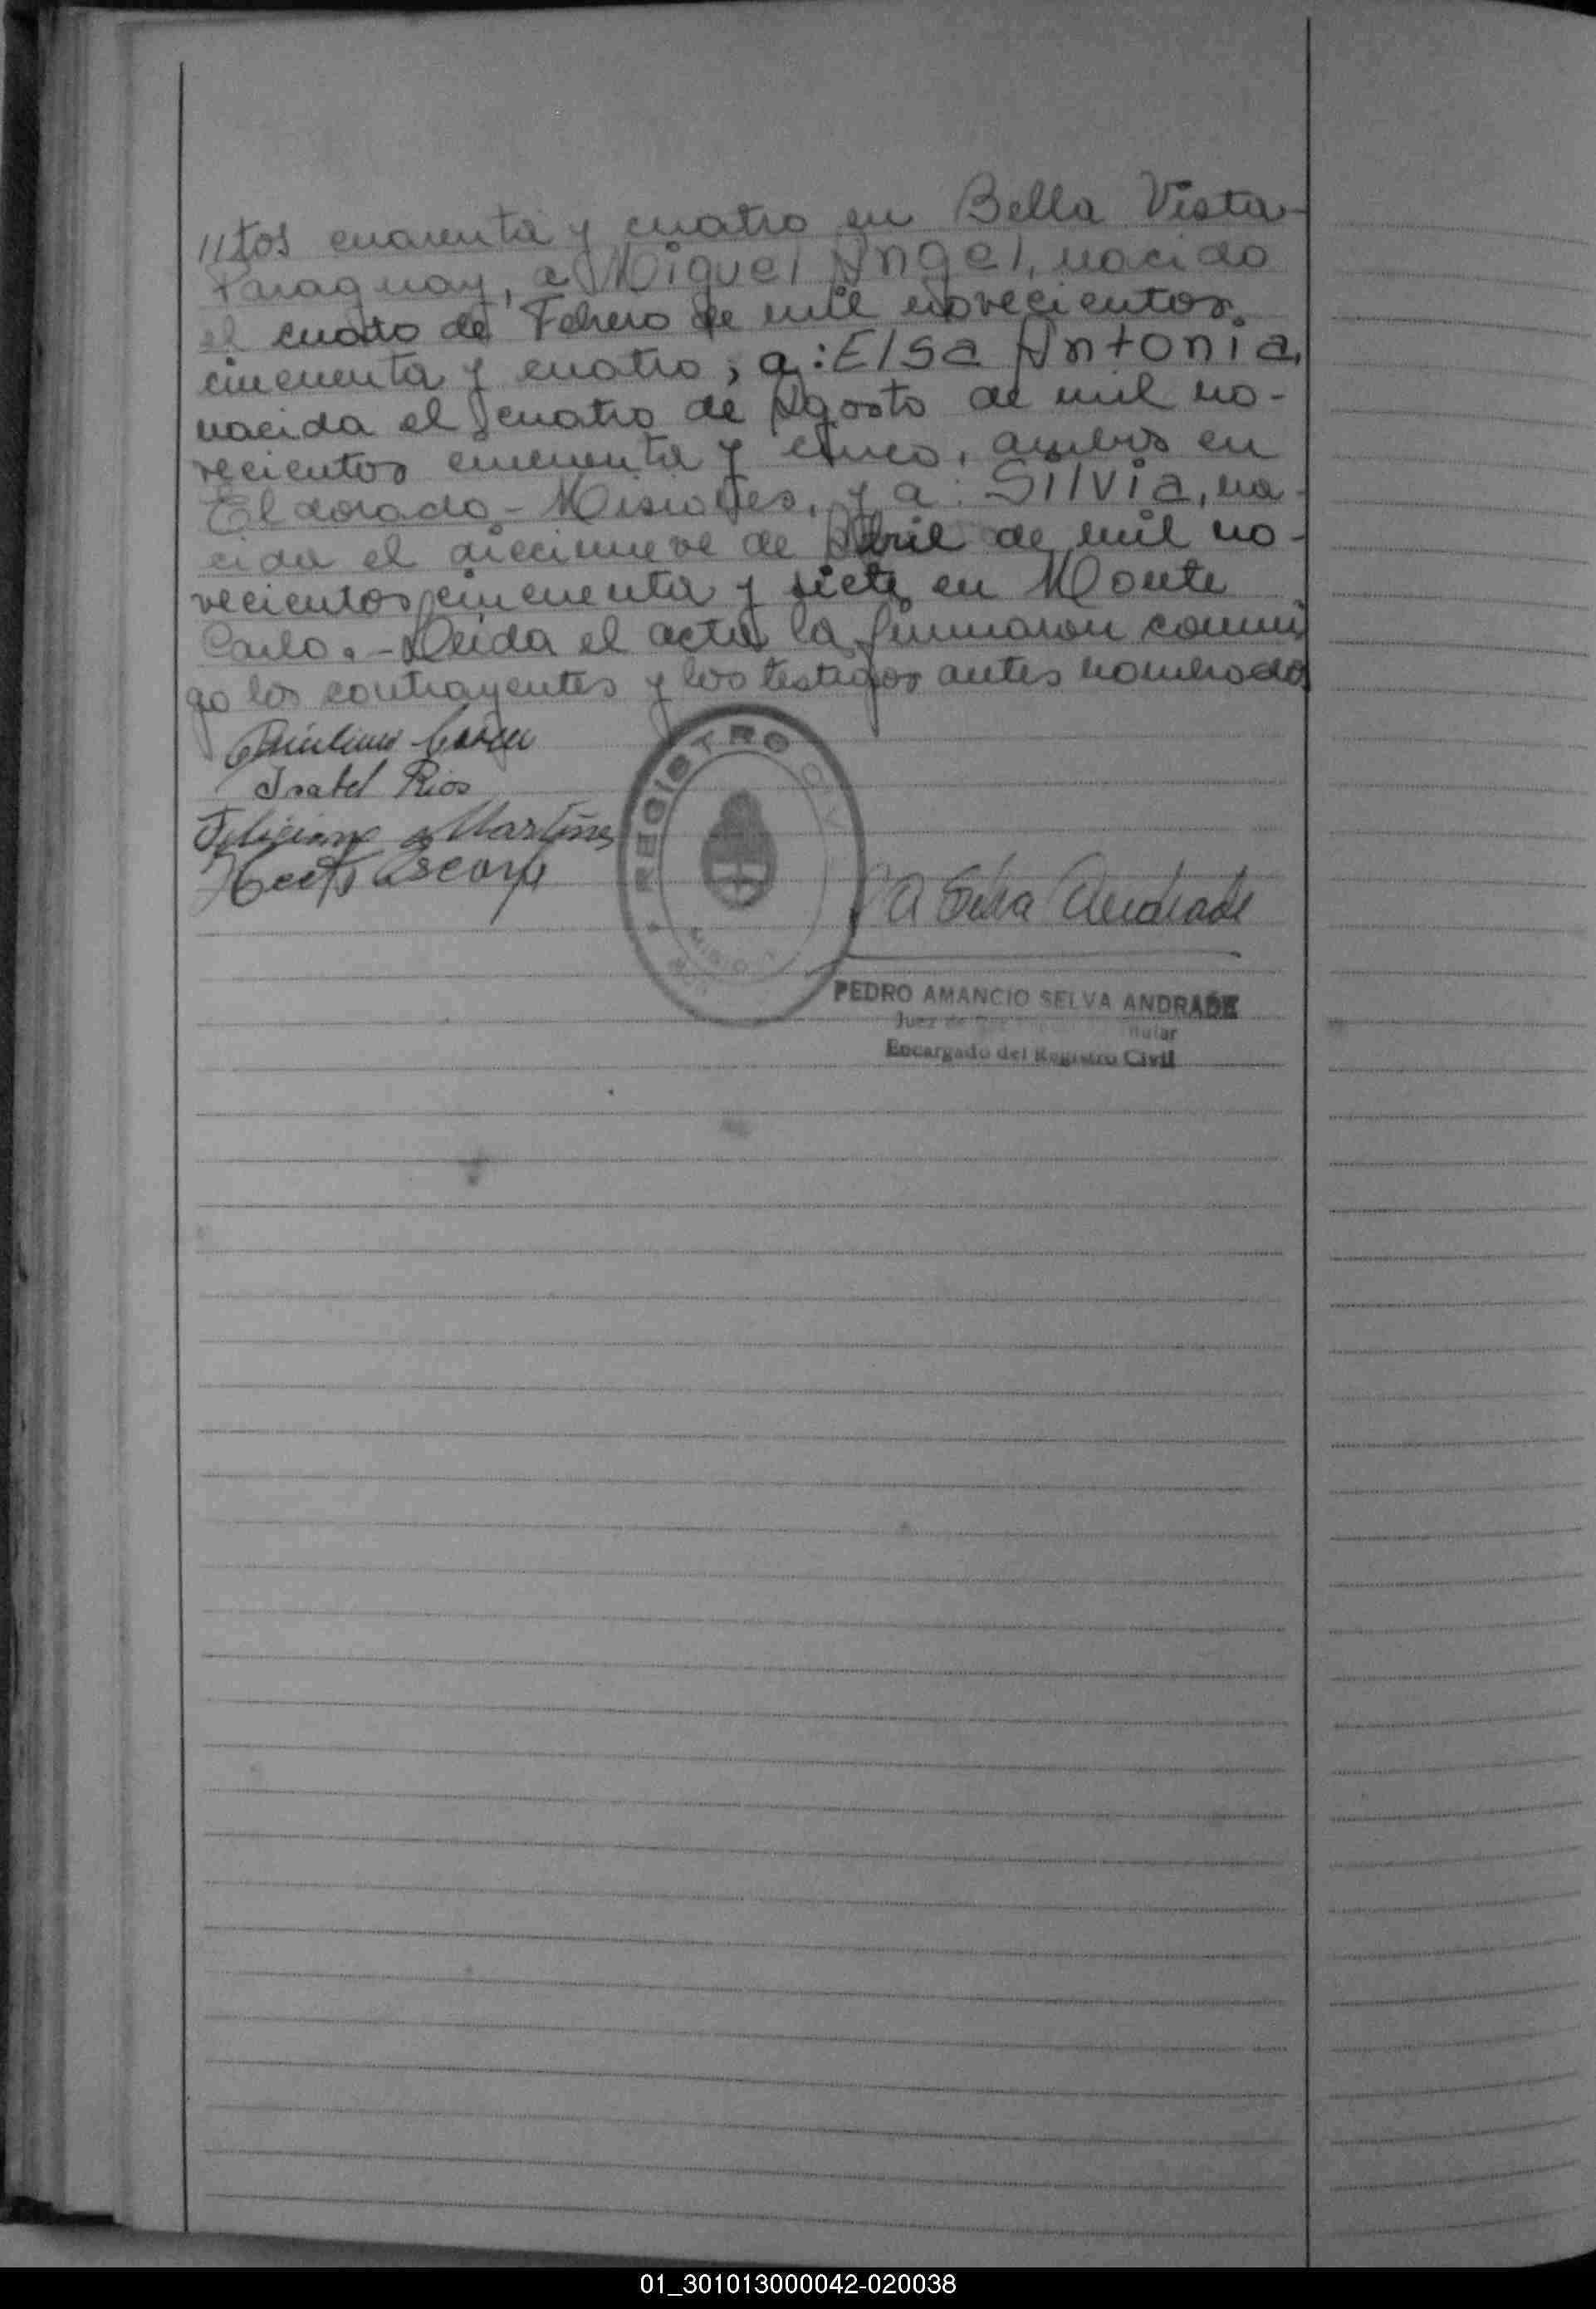 //tos cuarenta y cuatro en Bella Vista-
Paraguay, a Miguel Angel, nacido
el cuatro de Febrero de mil novecientos
cincuenta y cuatro; a: Elsa Antonia,
nacida el cuatro de Agosto de mil no-
vecientos cincuenta y cinco, ambos en
El dorado - Misiones, y a: Silvia, na-
cida el diecinueve de Abril de mil no-
vecientos cincuenta y siete en Monte
Carlo.- Leida el acta la firmaron conmi
go los contrayentes y los testigos antes nombrados
Isabel Rios
Feliciano Martinez
REGISTRO CIVIL
MISIONES
PA Selva Andrade
PEDRO AMANCIO SELVA ANDRADE
Juez de Paz
Encargado del Registro Civil
01_301013000042-020038